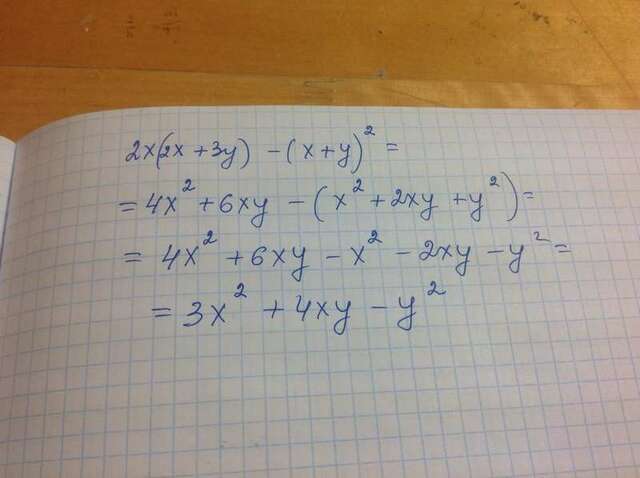 2x(2x + 3y) - (x + y)² =
= 4x² + 6xy - (x² + 2xy + y²) =
= 4x² + 6xy - x² - 2xy - y² =
= 3x² + 4xy - y²